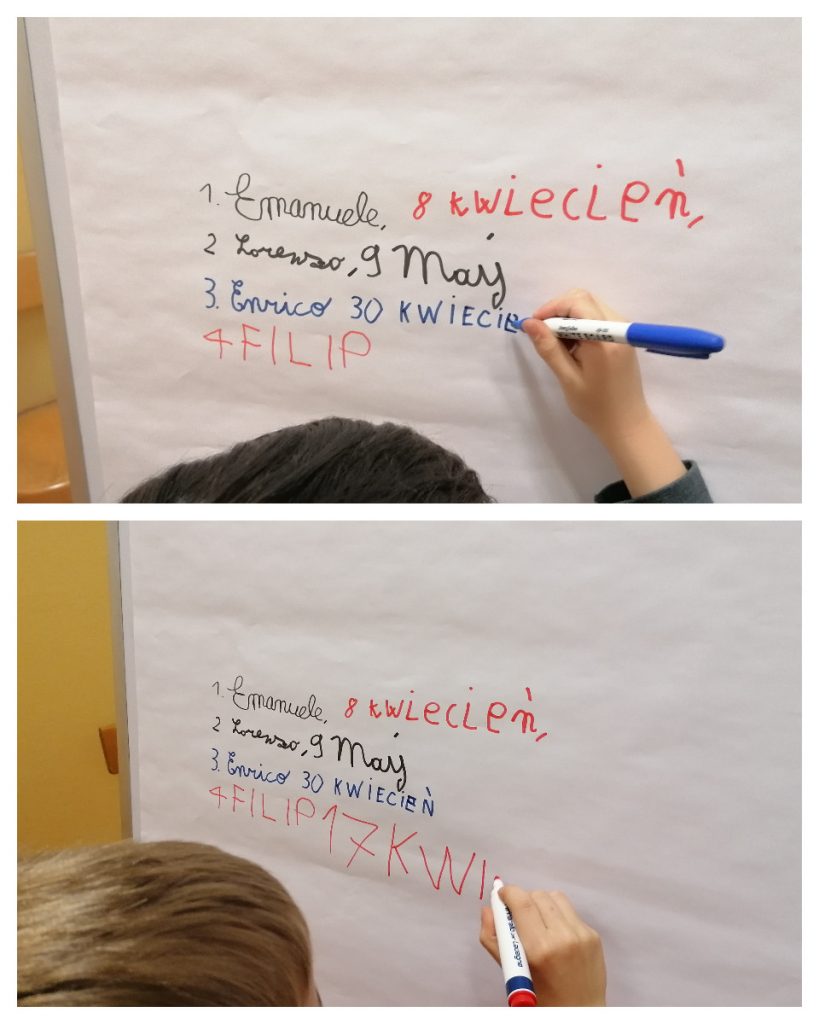 1. Emanuele, 8 kwiecień,
2 Lorenzo, 9 Maj
3. Enrico 30 KWIECIE
4 FILIP
1. Emanuele, 8 kwiecień,
2 Lorenzo, 9 Maj
3. Enrico 30 KWIECIEŃ
4 FILIP 17 KWI